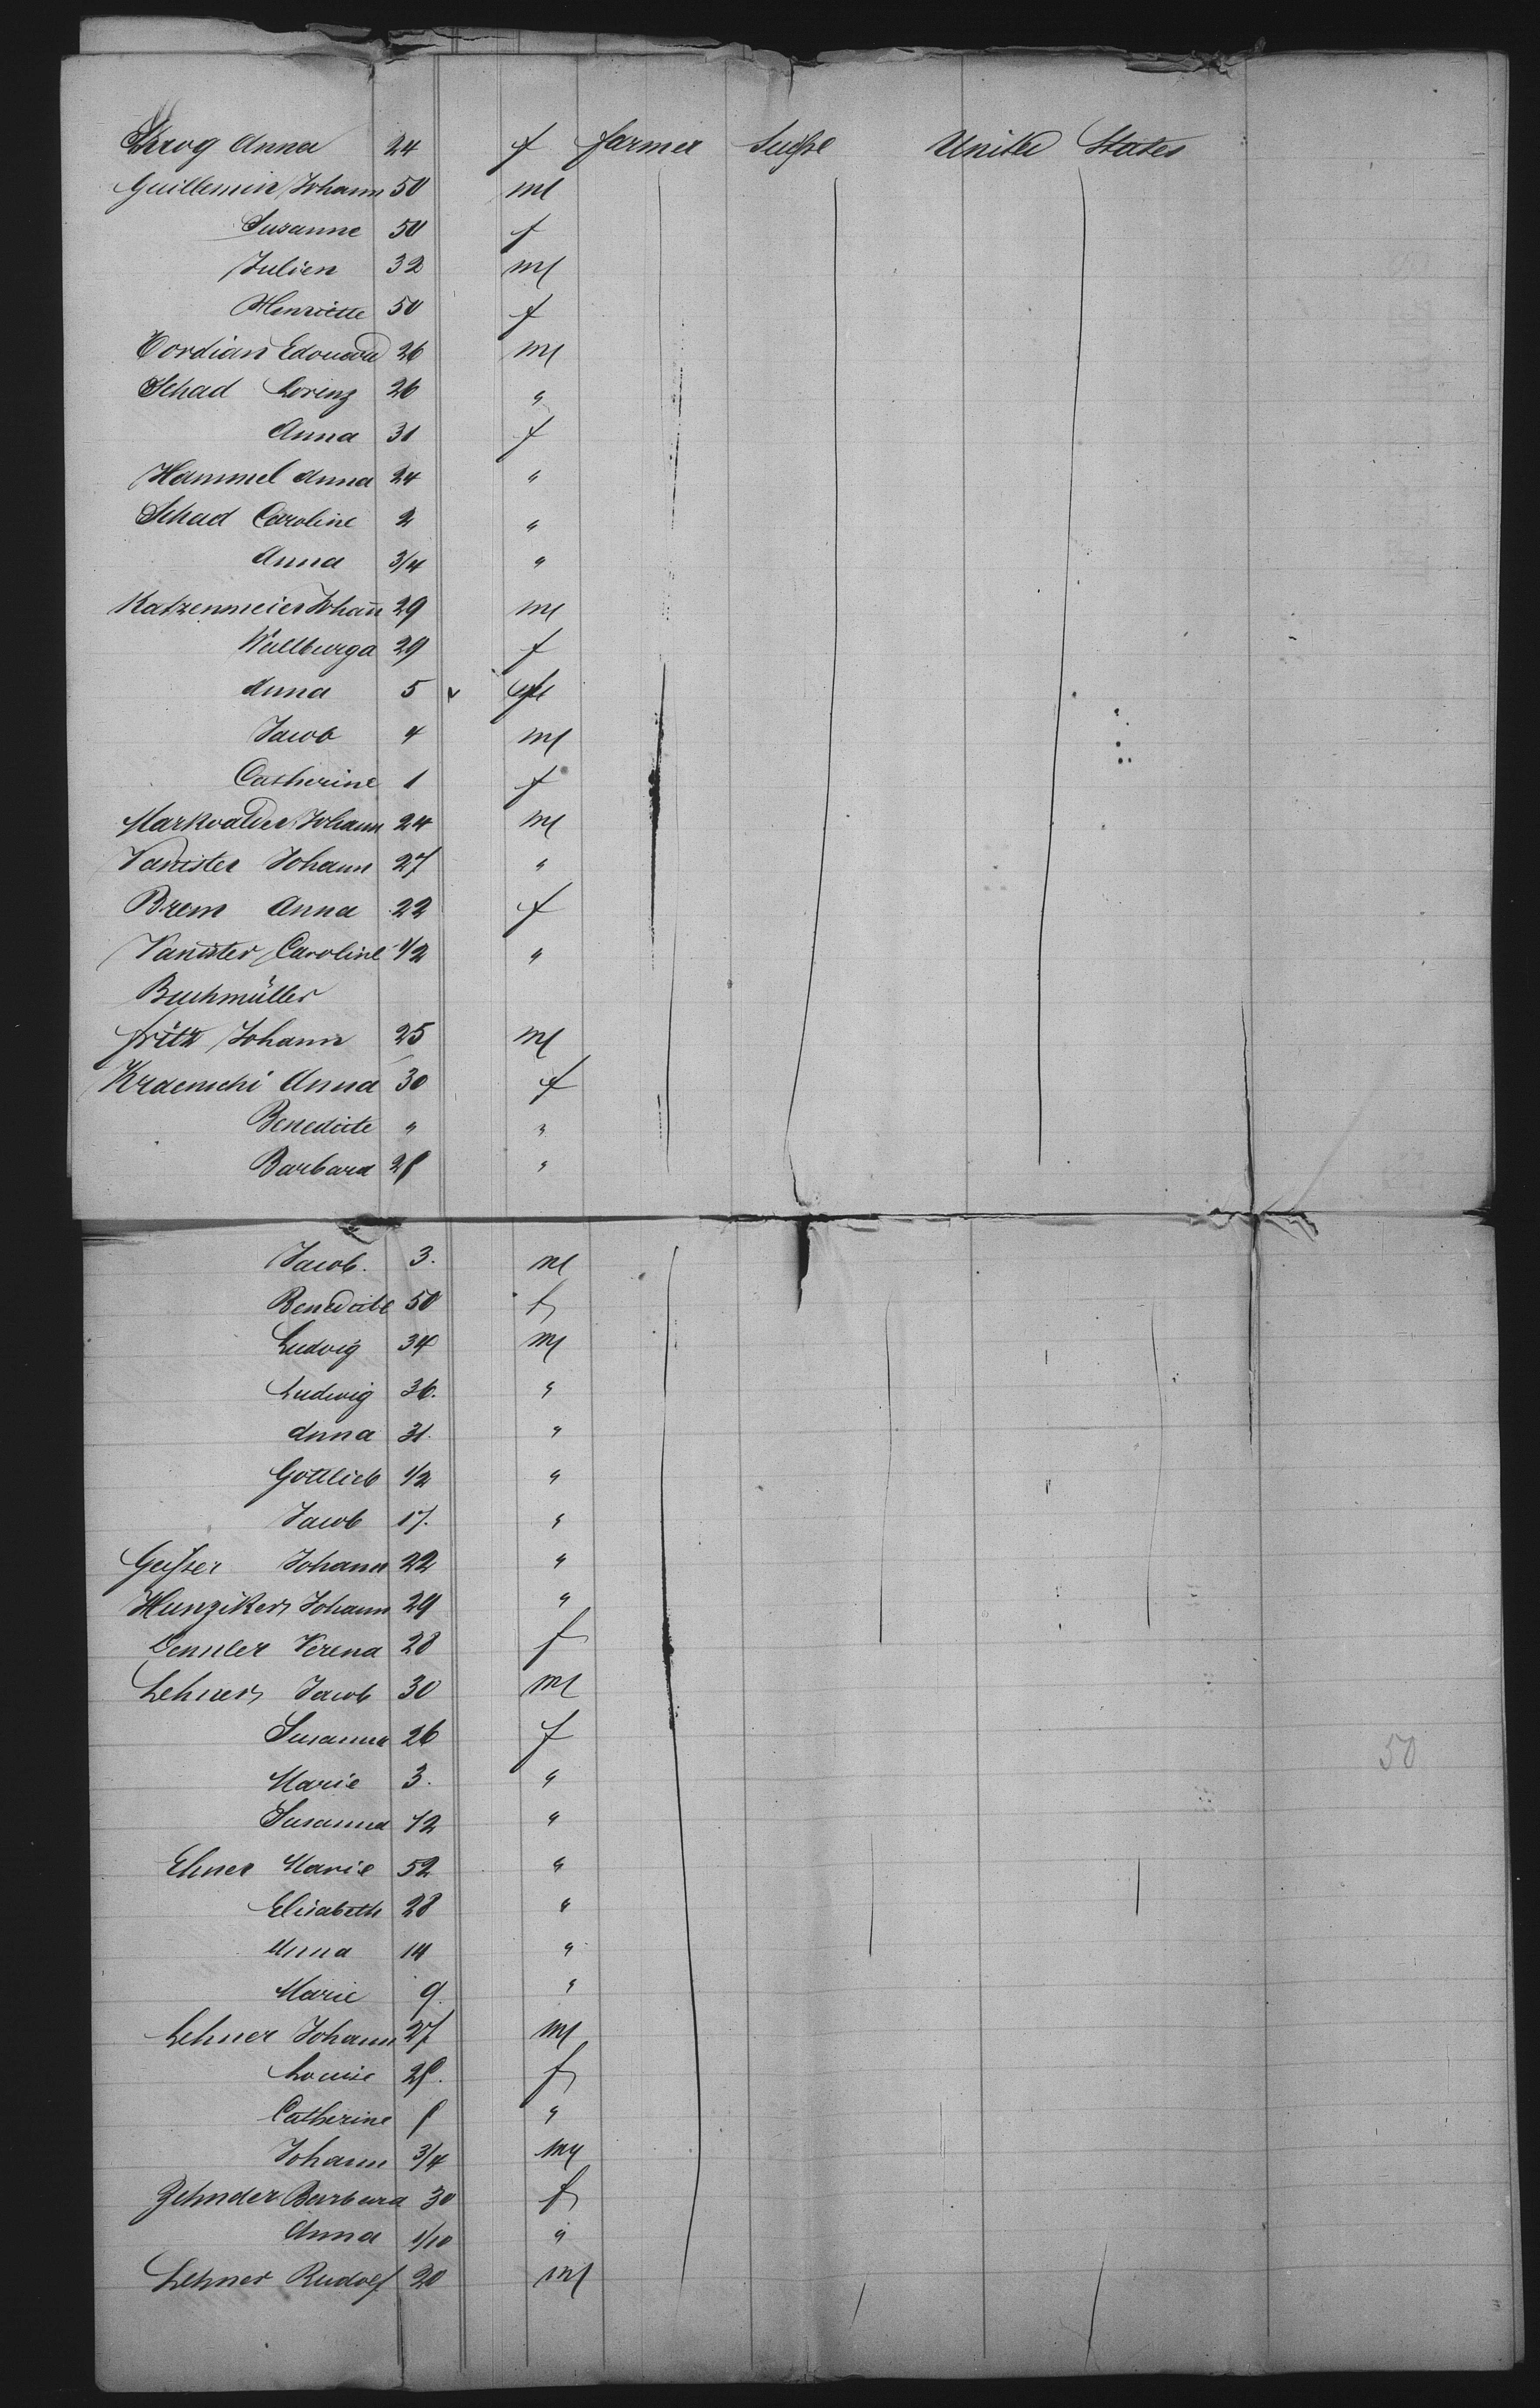 Krog Anna 24 f farmer Suisse United States
Guillemin Johann 50 m
Susanne 50 f
Julien 32 m
Henriette 50 f
Cordian Edouard 26 m
Schad Lorenz 26 "
Anna 31 f
Hammel Anna 24 "
Schad Caroline 2 "
Anna 3/4 "
Katzenmeier Johann 29 m
Wallburga 29 f
Anna 5 v f
Jacob 4 m
Catherine 1 f
Markwalder Johann 24 m
Vanister Johann 27 "
Brem Anna 22 f
Vanister Caroline 1/2 "
Buchmüller
Fritz Johann 25 m
Kraenschi Anna 30 f
Benedicte " "
Barbara 28 "
Jacob. 3. m
Benedicte 50 f
Ludvig 34 m
Ludwig 36. "
Anna 31. "
Gottlieb 1/2 "
Jacob 17. "
Geisser Johann 22 "
Hunziker Johann 29 "
Dennler Verena 28 f
Lehner Jacob 30 m
Susanna 26 f
Marie 3. " 50
Susanna 1/2 "
Ehner Marie 52 "
Elisabeth 28 "
Anna 14 "
Marie 9. "
Lehner Johann 27 m
Louise 28. f
Catherine 8 "
Johann 3/4 m
Zehnder Barbara 30 f
Anna 1/10 "
Lehner Rudolf 20 m